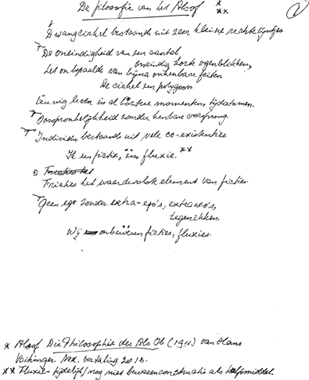 De filosofie van het Alsof *
**
Dwangcirkel bestaande uit zeer kleine rechte lijntjes
De oneindigheid van een aantal
oneindig korte ogenblikken,
Het onbepaalde van bijna onkenbare feiten
De cirkel een polygoon
Eeuwig leven in al kortere momenten, tijdatomen.
Oorspronkelijkheid zonder kenbare oorsprong.
Individu bestaande uit vele co-existenties
Ik en fictie, één fluxie. **
Fricties het waardevolste element van ficties.
Geen ego zonder extra-ego's, extraneo's,
tegenikken.
Wij onbewezen ficties, fluxies.
* Alsof Die Philosophie des Als Ob (1911) van Hans
Vaihinger. Ned. vertaling 2013.
** Fluxie - tijdelijk/nog niet bewezen als hulpmiddel.